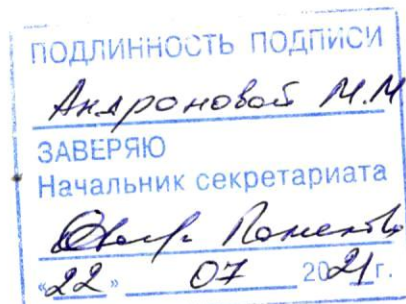 ПОДЛИННОСТЬ ПОДПИСИ
Андроновой М.М
ЗАВЕРЯЮ
Начальник секретариата
"22" 07 2021 г.